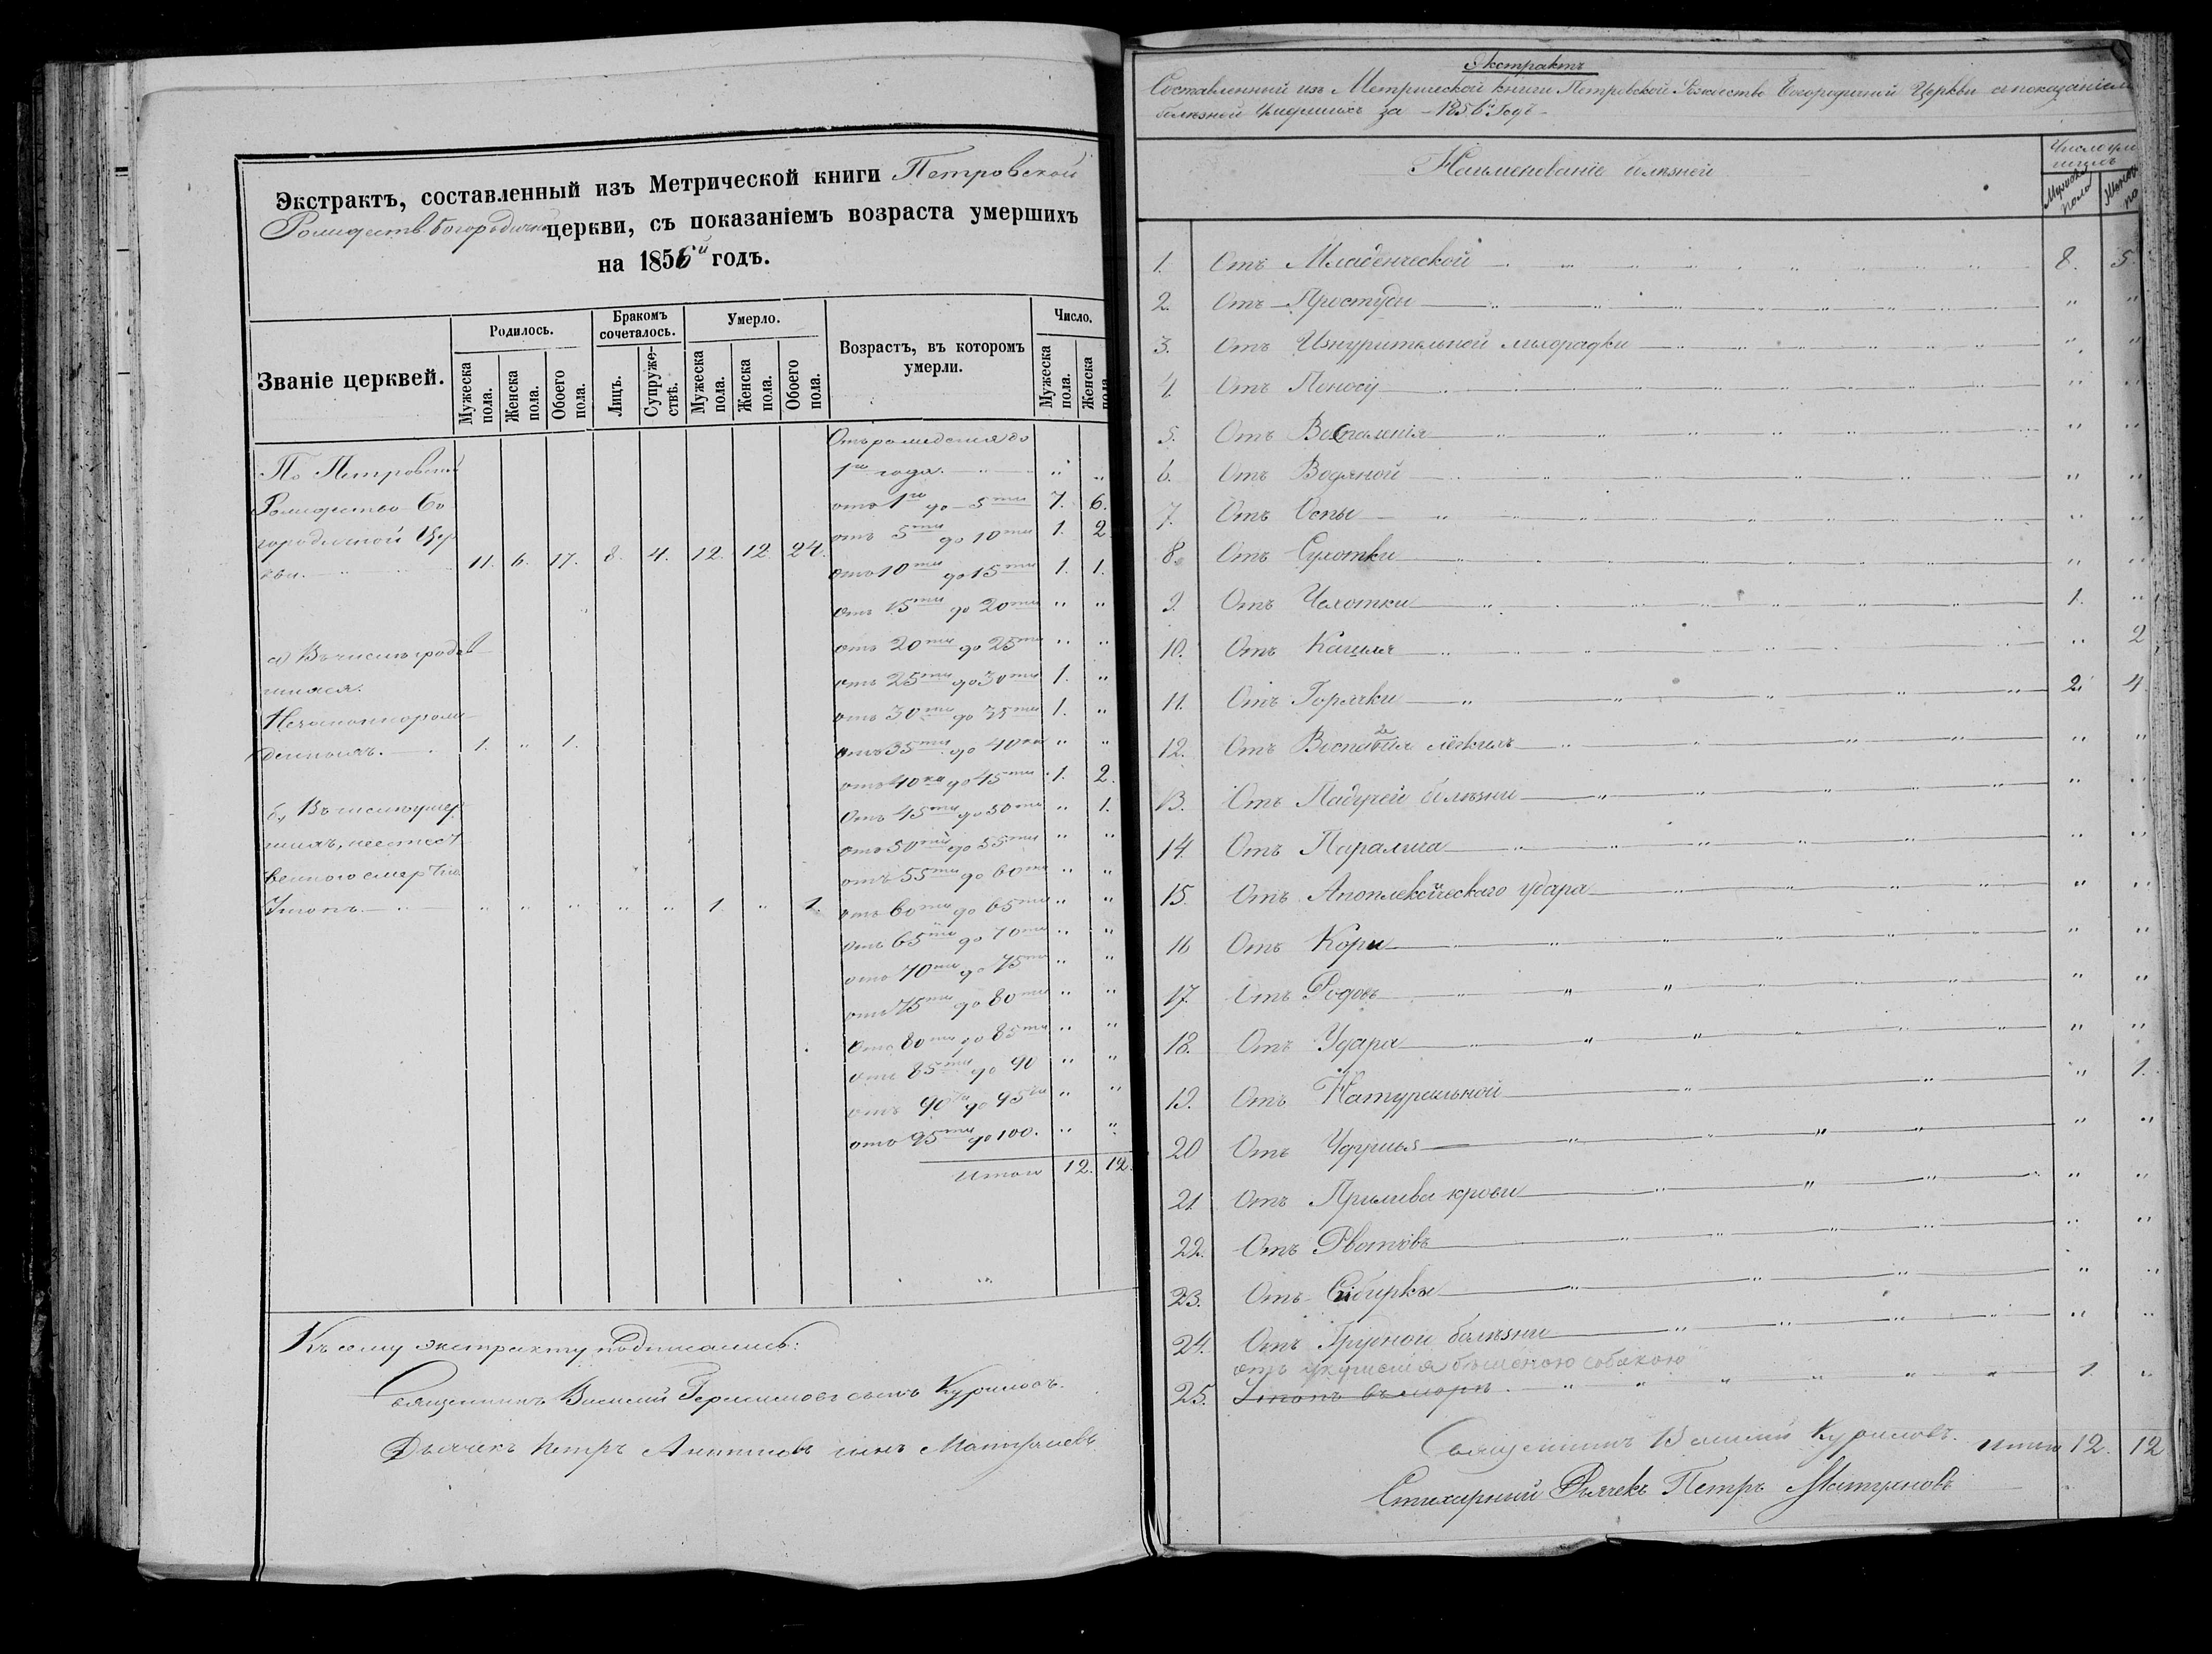 Экстрактъ, составленный изъ Метрической книги Петровской
Рождеств Богородичной церкви, съ показаніемъ возраста умершихъ
на 1856й годъ.
Званіе церквей.
Родилось.
Мужеска пола.
Женска пола.
Обоего пола.
Бракомъ сочеталось.
Лицъ.
Супружествъ.
Умерло.
Мужеска пола.
Женска пола.
Обоего пола.
Возрастъ, въ которомъ умерли.
Число.
Мужеска пола.
Женска пола.
По Петровской
Рождество Бо
городичной Цер
кви. 11. 6. 17. 8. 4. 12. 12 24.
а) Въ числѣ родив
шихся.
Незаконнорож
денныхъ. 1. " 1.
б) Въ числѣ умер
шихъ, неестест
венною смертію
" " " " " 1. " 1.
Отъ рожденія до
1го года. " "
отъ 1го до 5ти 7. 6.
отъ 5ти до 10ти 1. 2
отъ 10ти до 15ти 1. 1.
отъ 15ти до 20ти " "
отъ 20ти до 25ти " "
отъ 25ти до 30ти 1. "
отъ 30ти до 35ти 1. "
отъ 35ти до 40ка " "
отъ 40ка до 45ти 1. 2.
Отъ 45ти до 50ти " 1.
отъ 50ти до 55ти " "
отъ 55ти до 60ти " "
отъ 60ти до 65ти " "
отъ 65ти до 70ти " "
отъ 70ти до 75ти " "
отъ 75ти до 80ти " "
Отъ 80ти до 85ти " "
отъ 85ти до 90 " "
отъ 90ти до 95ти " "
отъ 95ти до 100. " "
Итого 12. 12.
Къ сему экстракту подписались:
Священникъ Василій Герасимовъ сынъ Куриловъ.
Дьячекъ Петръ сынъ
Экстрактъ
Составленный изъ Метрической книги Петровской Рождество Богородичной Церкви с показаніемъ
болѣзней Умершихъ за 1856й Годъ
Наименованіе болѣзней
Число умершихъ
Мужеска пола
Женска по
1. Отъ Младенческой 8. 5.
2. Отъ Простуды " "
3. Отъ Изнурительной лихорадки " "
4. Отъ Поносу " "
5. Отъ Воспаленія " "
6. Отъ Водяной " "
7. Отъ Оспы " "
8. Отъ Сухотки " "
9. Отъ Чахотки 1. "
10. Отъ Кашля " 2
11. Отъ Горячки 2. 4.
12. Отъ лёгкихъ " "
13. Отъ Падучей болѣзни " "
14. Отъ Паралича " "
15. Отъ Апоплексическаго удара " "
16 Отъ Кори " "
17. Отъ Родовъ " "
18. Отъ Удара " "
19. Отъ Натуральной " 1.
20 Отъ Удушья " "
21. Отъ Прилива крови " "
22. Отъ Рвотовъ " "
23. Отъ Сибирки " "
24. Отъ Грудной болѣзни " "
отъ укушенія бѣшеною собакою
25. Утопъ въ морѣ. 1. "
Священникъ Василій Куриловъ. Итого 12. 12
Стихарный Дьячекъ Петръ